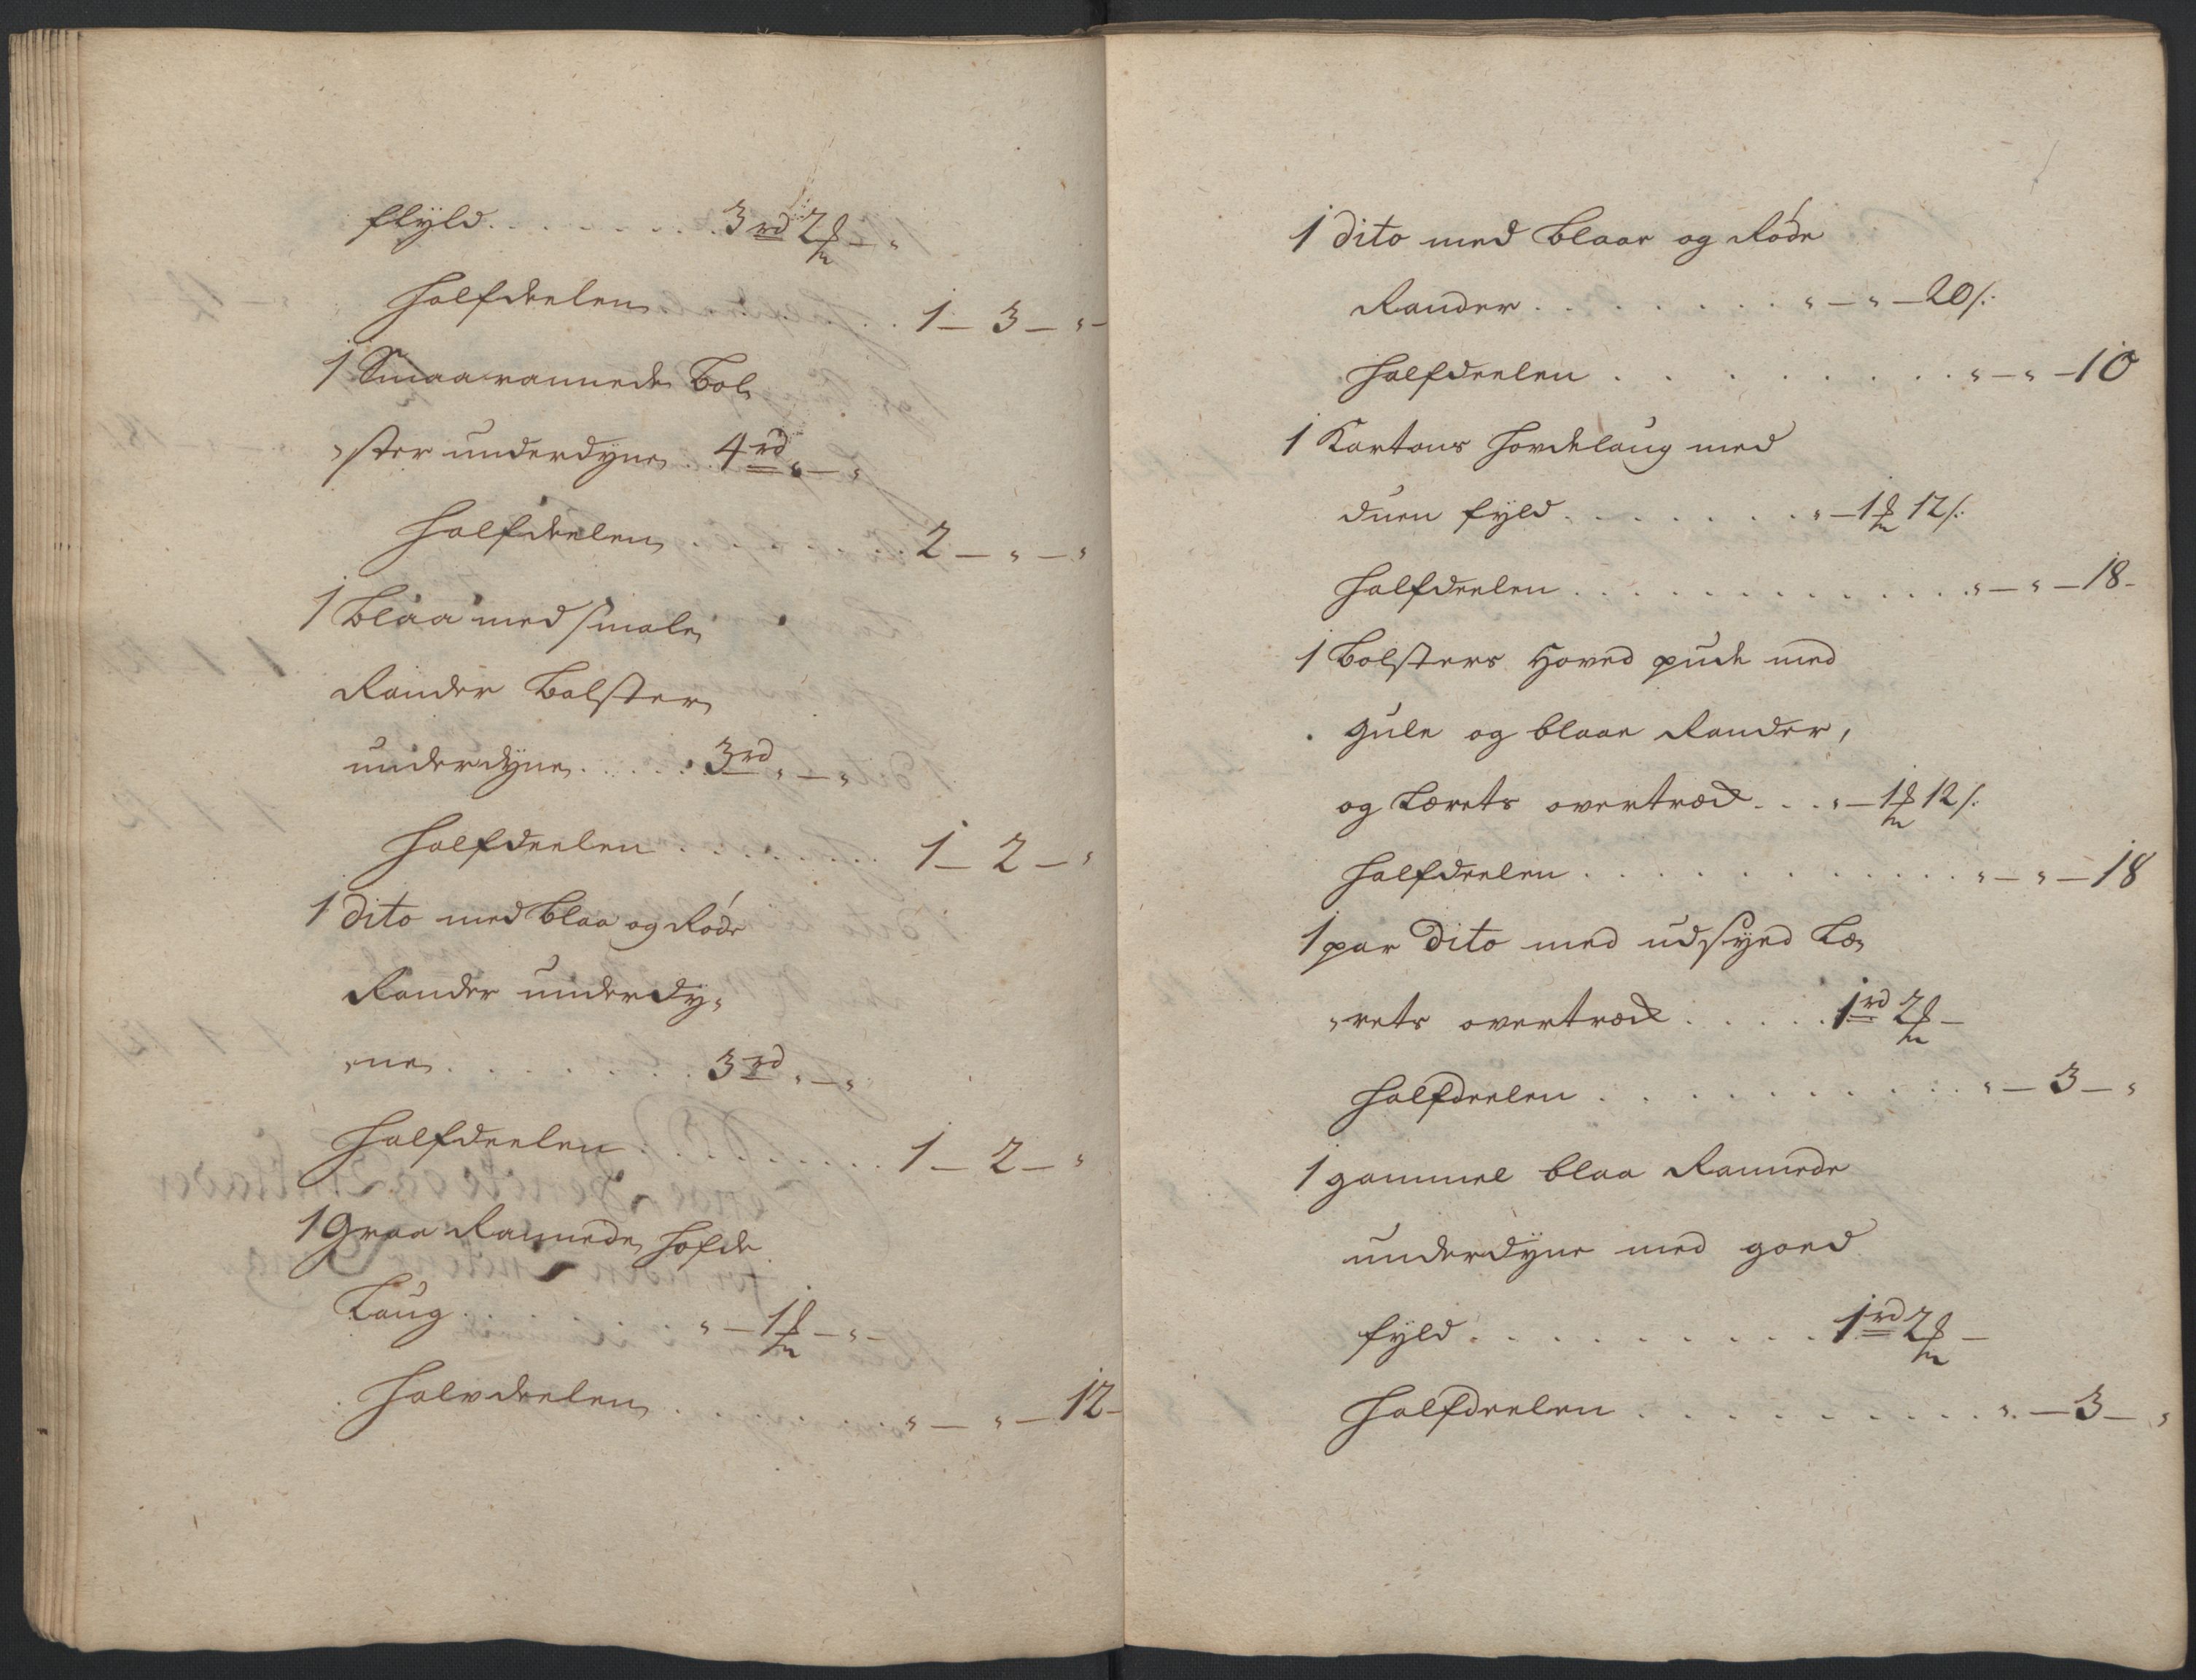 fyld . . . . . . . . 3 rd 2 ℳ – „
Halfdeelen . . . . . . . 1 – 3 – „ –
1 Smaa rannede Bol„
„ster underdyne . . 4 rd „ – „
Halfdeelen . . . . . . . 2 – „ – „
1 Blaa med smale
Rander Bolster
underdyne . . . . . 3 rd „ – „
Halfdeelen . . . . . . . 1 – 2 – „
1 Dito med Blaa og Røde
Rander underdy„
„ne . . . . . . . . 3 rd „ – „
Halfdeelen . . . . . . . . 1 – 2 – „
1 Graa Rannede Hofde
Laug . . . . „ – 1 ℳ – „ –
Halvdeelen . . . . . . „ – „ – 12 –
1 Dito med Blaae og Røde
Rander . . . . . . . . „ – „ – 20 /:
Halfdeelen . . . . . . . . „ – „ – 10
1 Kartons Hovdelaug med
duen fyld . . . . . . . „ – 1 ℳ 12 /:
Halfdeelen . . . . . . . . . . . . „ – „ – 18 –
1 Bolsters Hoved pude med
gule og blaae Rander,
og Lærets overtræk . . . „ – 1 ℳ 12 /:
Halfdeelen . . . . . . . . . . . „ – „ – 18
1 par Dito med udsyed Læ„
„rets overtræk . . . . . 1 rd 2 ℳ –
Halfdeelen . . . . . . . . . . . „ – 3 – „
1 gammel blaa Rannede
underdyne med goed
fyld . . . . . . . . . . 1 rd 2 ℳ –
Halfdeelen . . . . . . . . . . „ – 3 – „